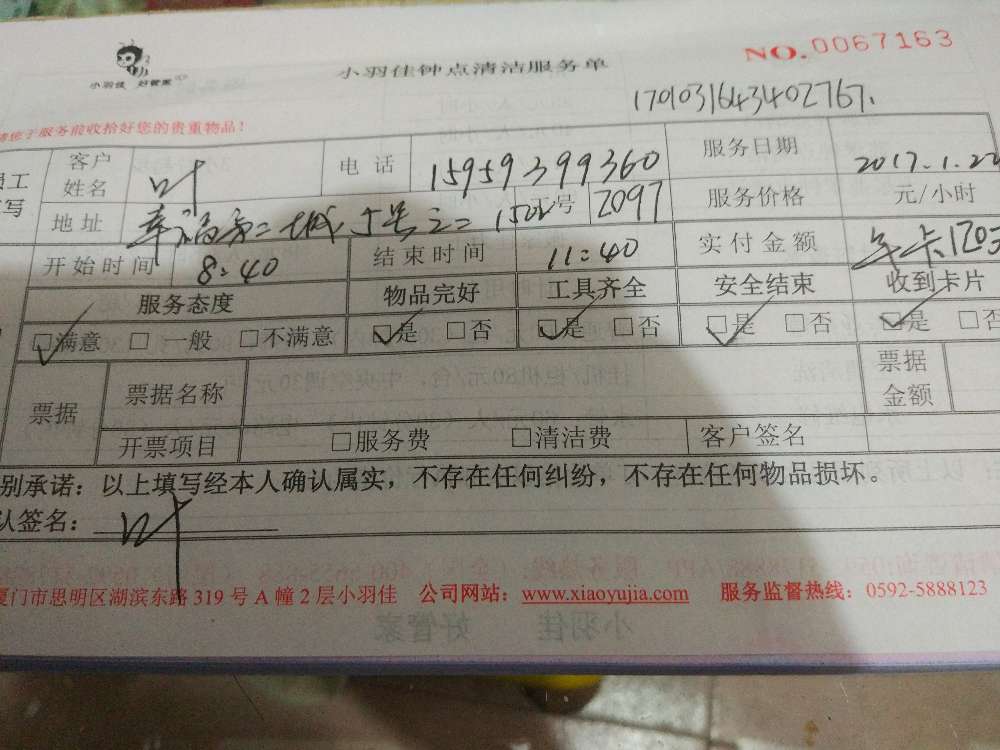 小羽佳 好管家
小羽佳钟点清洁服务单
NO.0067163
1701031643402767.
您于服务前收拾好您的贵重物品!
员工 客户姓名 叶 电话 15959399360 服务日期 2017.1.22
写 地址 幸福 二城5号之二1502 工号 2097 服务价格 元/小时
开始时间 8:40 结束时间 11:40 实付金额 年卡120元
服务态度 物品完好 工具齐全 安全结束 收到卡片
☑满意 □一般 □不满意 ☑是 □否 ☑是 □否 ☑是 □否 ☑是 □否
票据 票据名称 票据金额
开票项目 □服务费 □清洁费 客户签名
别承诺:以上填写经本人确认属实,不存在任何纠纷,不存在任何物品损坏。
认签名: 叶
厦门市思明区湖滨东路 319 号 A 幢 2 层小羽佳 公司网站:www.xiaoyujia.com 服务监督热线:0592-5888123